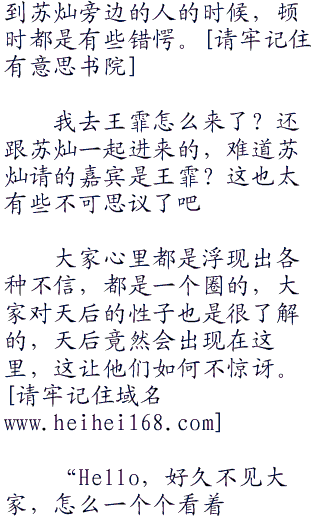 到苏灿旁边的人的时候，顿
时都是有些错愕。[请牢记住
有意思书院]
我去王霏怎么来了？还
跟苏灿一起进来的，难道苏
灿请的嘉宾是王霏？这也太
有些不可思议了吧
大家心里都是浮现出各
种不信，都是一个圈的，大
家对天后的性子也是很了解
的，天后竟然会出现在这
里，这让他们如何不惊讶。
[请牢记住域名
www.heihei168.com]
“Hello，好久不见大
家，怎么一个个看着